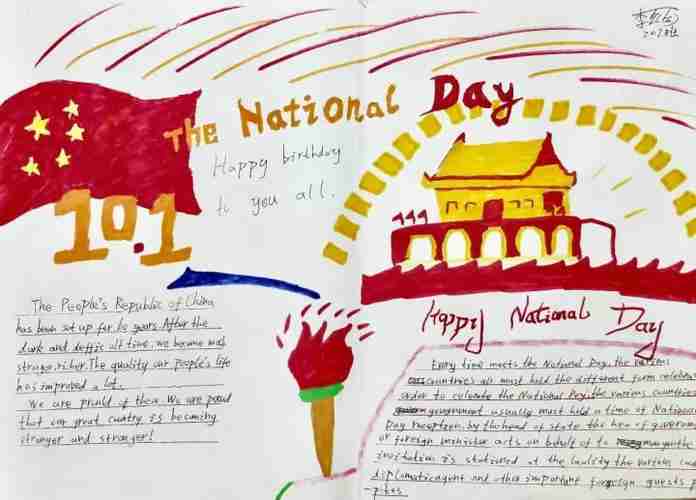 The National Day
Happy birthday
to you all.
10.1
The People's Republic of China
has been set up for 60 years. After the
dark and
time. we became
richer. The quality our People's life
has improved a lot.
We are proud of thea. We are poud
that our great cuntry is becoming
stronger and stronger!
Happy National Day
Every time meets the National Day, the various
countries all must hold the different form
order to the National Day, the various countries
government usually must hold a time of National
Day reception, by the head of state the
or foreign minister acts on behalf of to
invitation is stationed at the the various
diplomatic agent and other important foreign guests